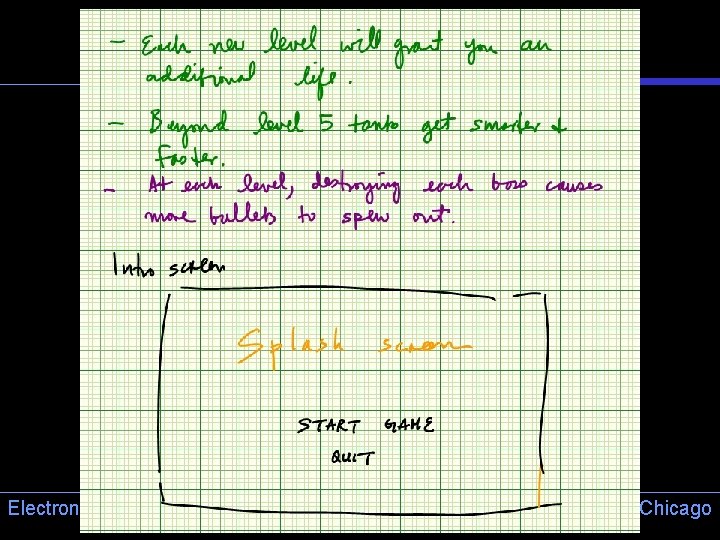 - Each new level will grant you an
additional life.
- Beyond level 5 tanks get smarter &
faster.
- At each level, destroying each boss causes
more bullets to spew out.
Intro screen
Splash screen
START GAME
QUIT
Electron
Chicago